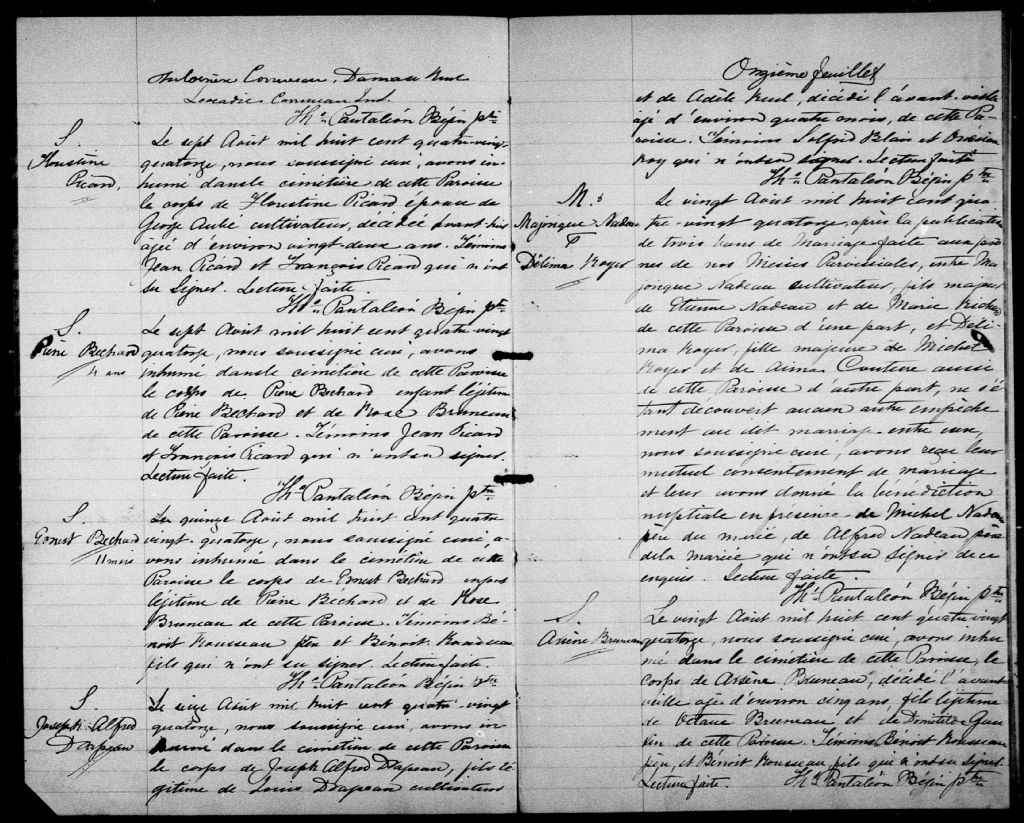 Corriveau, Damase
Corriveau Ind.
Ths Pantaléon Bégin ptre
S.
Floustine
Picard,
Le sept Août mil huit cent quatre-vingt
quatorze, nous soussigné curé, avons in-
humé dans le cimetière de cette Paroisse
le corps de Floustine Picard épouse de
George Aubé cultivateur, décédée avant-hier
âgée d'environ vingt-deux ans. Témoins
Jean Picard et François Picard qui n'ont
su signer. Lecture faite.
Ths Pantaléon Bégin ptre
S.
Pierre Bechard
4 ans
Le sept Août mil huit cent quatre-vingt
quatorze, nous soussigné curé, avons
inhumé dans le cimetière de cette Paroisse
le corps de Pierre Bechard enfant légitime
de Pierre Bechard et de Rose Bruneau
de cette Paroisse. Témoins Jean Picard
et François Picard qui n'ont su signer.
Lecture faite.
Ths Pantaléon Bégin ptre
S.
Ernest Bechard
11 mois
Le quinze Août mil huit cent quatre
vingt-quatorze, nous soussigné curé, a-
vons inhumé dans le cimetière de cette
Paroisse le corps de Ernest Bechard enfant
légitime de Pierre Béchard et de Rose
Bruneau de cette Paroisse. Témoins Bé-
noit Rousseau père et Bénoit Rousseau
fils qui n'ont su signer. Lecture faite.
Ths Pantaléon Bégin ptre
S.
Joseph Alfred
Drapeau
Le seize Août mil huit cent quatre-vingt
quatorze, nous soussigné curé, avons in-
humé dans le cimetière de cette Paroisse
le corps de Joseph Alfred Drapeau, fils lé-
gitime de Louis Drapeau cultivateur
Onzième feuillet
et de Adèle, décédé l'avant-veille
âgé d'environ quatre mois, de cette Pa-
roisse. Témoins Blais et
Roy qui n'ont su signer. Lecture faite
Ths Pantaléon Bégin ptre
M.
Majorique Nadeau
&
Délima Royer
Le vingt Août mil huit cent qua-
tre-vingt quatorze, après la publication
de trois bans de Mariage faite aux prô-
nes de nos Messes Paroissiales, entre Ma-
jorique Nadeau cultivateur, fils majeur
de Etienne Nadeau et de Marie
de cette Paroisse d'une part, et Déli-
ma Royer, fille majeure de Michel
Royer et de Couture aussi
de cette Paroisse d'autre part, ne s'é-
tant découvert aucun autre empêche
ment au dit mariage entre eux,
nous soussigné curé, avons reçu leur
mutuel consentement de mariage
et leur avons donné la bénédiction
nuptiale en présence de Michel Nadeau
père du marié, de Alfred Nadeau
de la Mariée qui n'ont su signer de ce
enquis. Lecture faite.
Ths Pantaléon Bégin ptre
S.
Arsène Bruneau
Le vingt Août mil huit cent quatre vingt
quatorze, nous soussigné curé, avons inhu-
mé dans le cimetière de cette Paroisse, le
corps de Arsène Bruneau, décédé l'avant
veille âgé d'environ cinq ans, fils légitime
de Octave Bruneau et de Domitilde
de cette Paroisse. Témoins Bénoit Rousseau
père, et Bénoit Rousseau fils qui n'ont su signer.
Lecture faite. Ths Pantaléon Bégin ptre